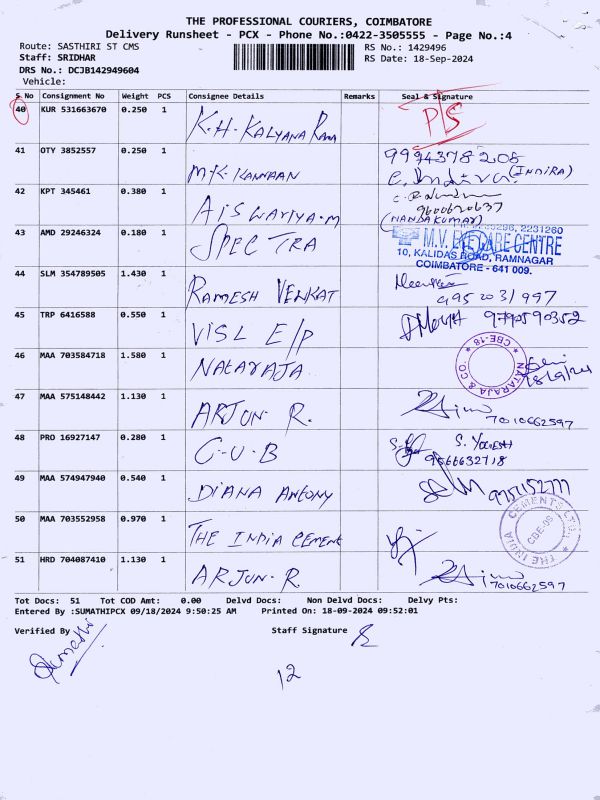 THE PROFESSIONAL COURIERS, COIMBATORE
Delivery Runsheet - PCX - Phone No.:0422-3505555 - Page No.:4
Route: SASTHIRI ST CMS
RS No.: 1429496
Staff: SRIDHAR
RS Date: 18-Sep-2024
DRS No.: DCJB142949604
Vehicle:
S No Consignment No Weight PCS Consignee Details Remarks Seal & Signature
40 KUR 531663670 0.250 1 K.H. KALYANA Ram P/S
41 OTY 3852557 0.250 1 M.K. KANNAAN 9994378208
C. Indira. (INDIRA)
42 KPT 345461 0.380 1 AISWARIYA.M 9600620637
(NANDAKUMAR)
43 AMD 29246324 0.180 1 SPECTRA 2231260
M.V. EYE CARE CENTRE
10, KALIDAS ROAD, RAMNAGAR
COIMBATORE - 641 009.
44 SLM 354789505 1.430 1 RAMESH VENKAT
45 TRP 6416588 0.550 1 VISL E/P 9790590352
46 MAA 703584718 1.580 1 NATARAJA NATARAJA & CO. CBE-18
18/9/24
47 MAA 575148442 1.130 1 ARJUN. R. 7010662597
48 PRO 16927147 0.280 1 C-U-B S. YOGESH
9566632718
49 MAA 574947940 0.540 1 DIANA ANTONY 9751152777
50 MAA 703552958 0.970 1 THE INDIA CEMENT THE INDIA CEMENTS LTD. CBE-09
51 HRD 704087410 1.130 1 ARJUN. R 7010662597
Tot Docs: 51 Tot COD Amt: 0.00 Delvd Docs: Non Delvd Docs: Delvy Pts:
Entered By :SUMATHIPCX 09/18/2024 9:50:25 AM Printed On: 18-09-2024 09:52:01
Verified By Staff Signature
12